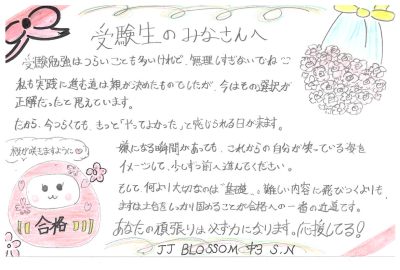 受験生のみなさんへ
受験勉強はつらいことも多いけれど、無理しすぎないでね
私も実践に進む道は親が決めたものでしたが、今はその選択が
正解だったと思えています。
だから、今つらくても、もっと「やってよかった」と感じられる日が来ます。
桜が咲きますように
嫌になる瞬間があっても、これからの自分が笑っている姿を
イメージして、少しずつ前へ進んでください。
そして、何より大切なのは「基礎」。難しい内容に飛びつくよりも、
まずは土台をしっかり固めることが合格への一番の近道です。
合格
あなたの頑張りは必ず力になります。応援してる!
JJ BLOSSOM 中3 S.N